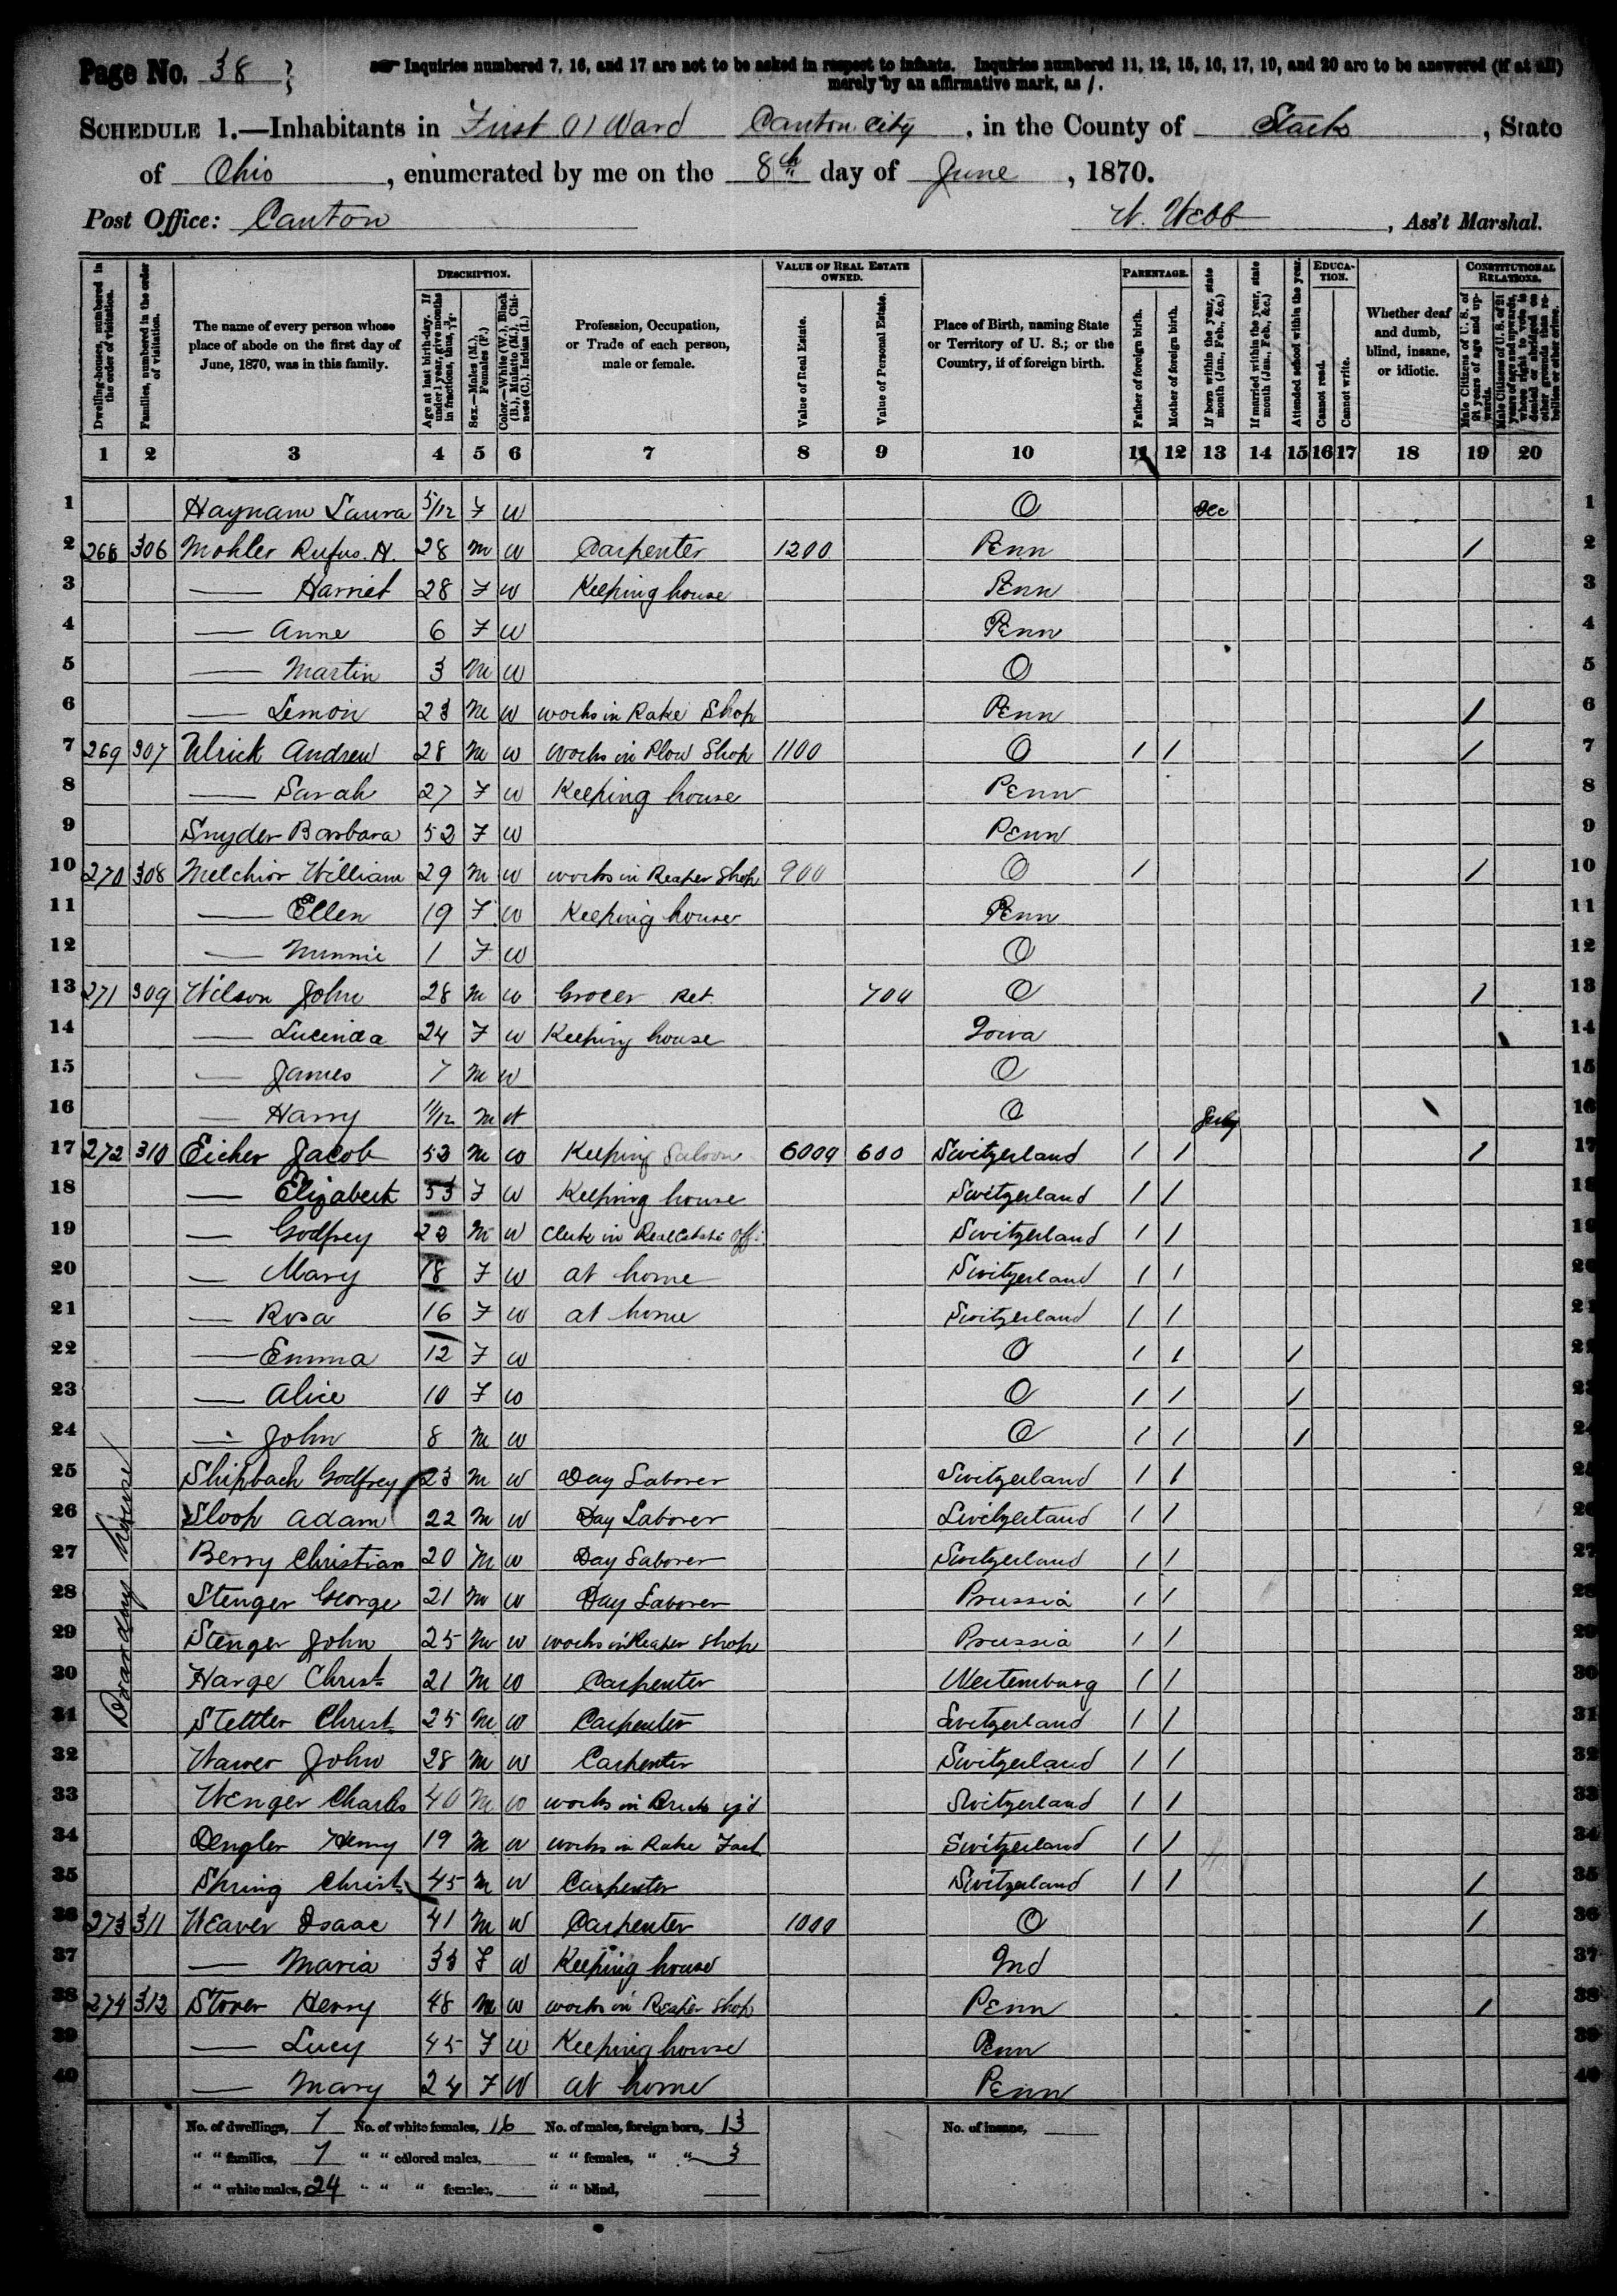 Page No. 38
Inquiries numbered 7, 16, and 17 are not to be asked in respect to infants. Inquiries numbered 11, 12, 15, 16, 17, 19, and 20 are to be answered (if at all)
merely by an affirmative mark, as /.
SCHEDULE 1.—Inhabitants in First (1) Ward Canton City, in the County of Stark, State
of Ohio, enumerated by me on the 8th day of June, 1870.
Post Office: Canton W. Webb, Ass't Marshal.
Dwelling-houses, numbered in the order of visitation.
Families, numbered in the order of visitation.
The name of every person whose place of abode on the first day of June, 1870, was in this family.
DESCRIPTION.
Age at last birth-day. If under 1 year, give months in fractions, thus, 3/12.
Sex.—Males (M.), Females (F.)
Color.—White (W.), Black (B.), Mulatto (M.), Chinese (C.), Indian (I.)
Profession, Occupation, or Trade of each person, male or female.
VALUE OF REAL ESTATE OWNED.
Value of Real Estate.
Value of Personal Estate.
Place of Birth, naming State or Territory of U. S.; or the Country, if of foreign birth.
PARENTAGE.
Father of foreign birth.
Mother of foreign birth.
If born within the year, state month (Jan., Feb., &c.)
If married within the year, state month (Jan., Feb., &c.)
Attended school within the year.
EDUCATION.
Cannot read.
Cannot write.
Whether deaf and dumb, blind, insane, or idiotic.
CONSTITUTIONAL RELATIONS.
Male Citizens of U. S. of 21 years of age and upwards.
Male Citizens of U. S. of 21 years of age and upwards, whose right to vote is denied or abridged on other grounds than rebellion or other crime.
1 2 3 4 5 6 7 8 9 10 11 12 13 14 15 16 17 18 19 20
1 Haynam Laura 5/12 F W O Dec 1
2 268 306 Mohler Rufus. H. 28 M W Carpenter 1200 Penn / 2
3 — Harriet 28 F W Keeping house Penn 3
4 — Anne 6 F W Penn 4
5 — Martin 3 M W O 5
6 — Lemon 23 M W works in Rake Shop Penn / 6
7 269 307 Ulrick Andrew 28 M W works in Plow Shop 1100 O / / / 7
8 — Sarah 27 F W Keeping house Penn 8
9 Snyder Barbara 52 F W Penn 9
10 270 308 Melchior William 29 M W works in Reaper Shop 900 O / / 10
11 — Ellen 19 F W Keeping house Penn 11
12 — Minnie 1 F W O 12
13 271 309 Wilson John 28 M W Grocer Ret. 700 O / 13
14 — Lucinda 24 F W Keeping house Iowa 14
15 — James 7 M W O 15
16 — Harry 11/12 M W O July 16
17 272 310 Eicher Jacob 53 M W Keeping Saloon 6000 600 Switzerland / / / 17
18 — Elizabeth 53 F W Keeping house Switzerland / / 18
19 — Godfrey 22 M W Clerk in Real Estate Off. Switzerland / / 19
20 — Mary 18 F W at home Switzerland / / 20
21 — Rosa 16 F W at home Switzerland / / 21
22 — Emma 12 F W O / / / 22
23 — Alice 10 F W O / / / 23
24 — John 8 M W O / / / 24
Boarding house
25 Shipbach Godfrey 23 M W Day Laborer Switzerland / / 25
26 Sloop Adam 22 M W Day Laborer Switzerland / / 26
27 Berry Christian 20 M W Day Laborer Switzerland / / 27
28 Stenger George 21 M W Day Laborer Prussia / / 28
29 Stenger John 25 M W works in Reaper Shop Prussia / / 29
30 Harge Christ 21 M W Carpenter Wertemburg / / 30
31 Stettler Christ 25 M W Carpenter Switzerland / / 31
32 John 28 M W Carpenter Switzerland / / 32
33 Wenger Charles 40 M W works in Brick y'd Switzerland / / 33
34 Dengler Henry 19 M W works in Rake Fact. Switzerland / / 34
35 Shring Christ 45 M W Carpenter Switzerland / / / 35
36 273 311 Weaver Isaac 41 M W Carpenter 1000 O / 36
37 — Maria 33 F W Keeping house Ind 37
38 274 312 Stover Henry 48 M W works in Reaper Shop Penn / 38
39 — Lucy 45 F W Keeping house Penn 39
40 — Mary 24 F W at home Penn 40
No. of dwellings, 7 No. of white females, 16 No. of males, foreign born, 13 No. of insane,
" " families, 7 " " colored males, " " females, " " 3
" " white males, 24 " " " females, " " blind,